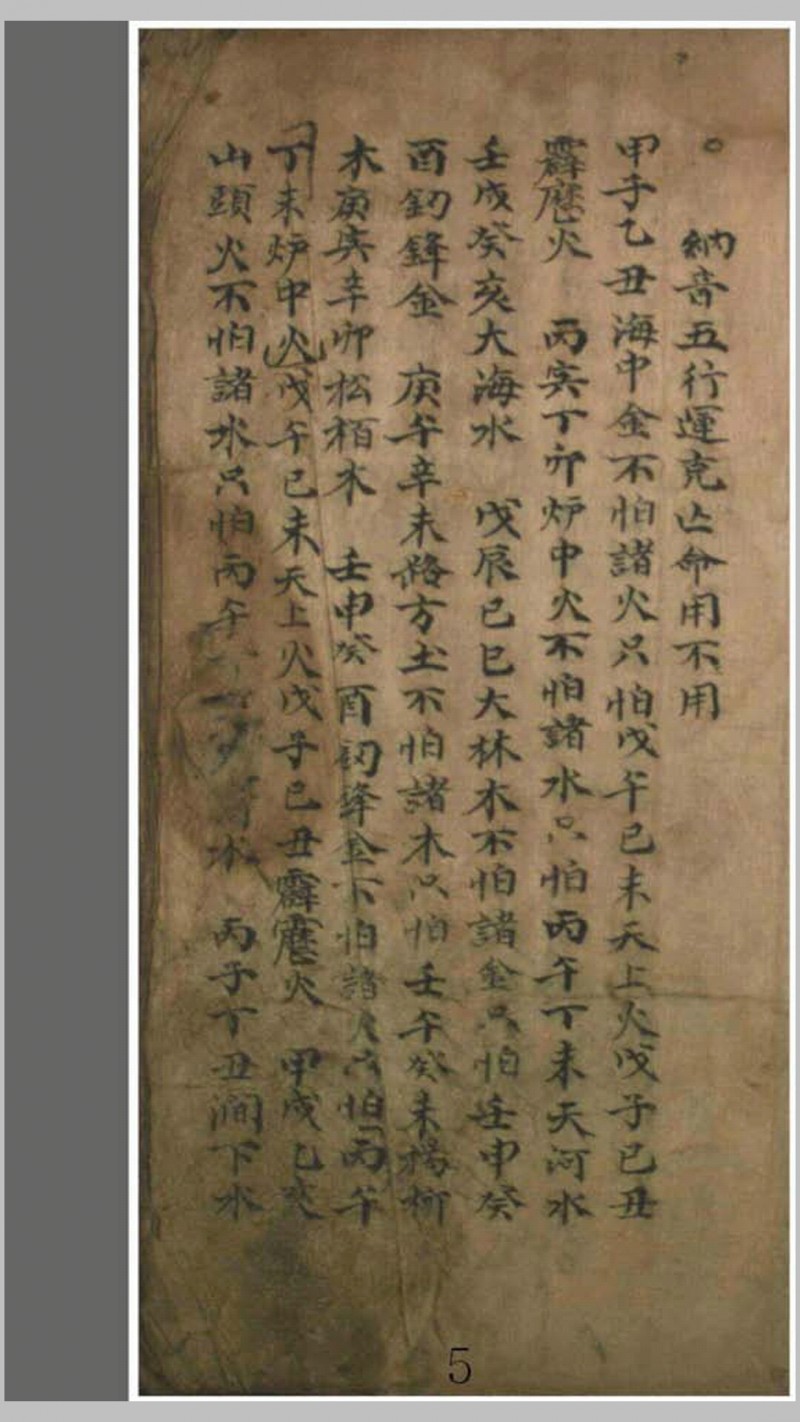 ○
納音五行運克亡命用不用
甲子乙丑海中金不怕諸火只怕戊午己未天上火戊子己丑
霹靂火 丙寅丁卯炉中火不怕諸水只怕丙午丁未天河水
壬戌癸亥大海水 戊辰己巳大林木不怕諸金只怕壬申癸
酉釰鋒金 庚午辛未路方土不怕諸木只怕壬午癸未楊柳
木庚寅辛卯松栢木 壬申癸酉釰鋒金不怕諸火只怕丙午
丁未炉中火戊午己未天上火戊子己丑霹靂火 甲戌乙亥
山頭火不怕諸水只怕丙午 水 丙子丁丑澗下水
5